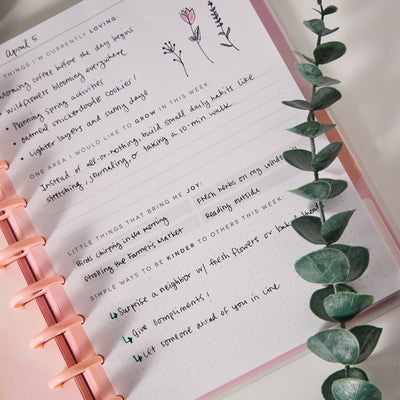 April 5
THINGS I'M CURRENTLY LOVING:
Morning coffee before the day begins
• Wildflowers blooming everywhere
• Planning Spring activities
• Oatmeal snickerdoodle cookies!
• Lighter layers and sunny days
ONE AREA I WOULD LIKE TO GROW IN THIS WEEK:
Instead of all-or-nothing, build small daily habits like
stretching, journaling, or taking a 10-min walk.
LITTLE THINGS THAT BRING ME JOY:
Birds chirping in the morning
Fresh herbs on my windowsill
Strolling the Farmers Market
Reading outside
SIMPLE WAYS TO BE KINDER TO OTHERS THIS WEEK:
↳ Surprise a neighbor w/ fresh flowers or baked
↳ Give compliments!
↳ Let someone ahead of you in line